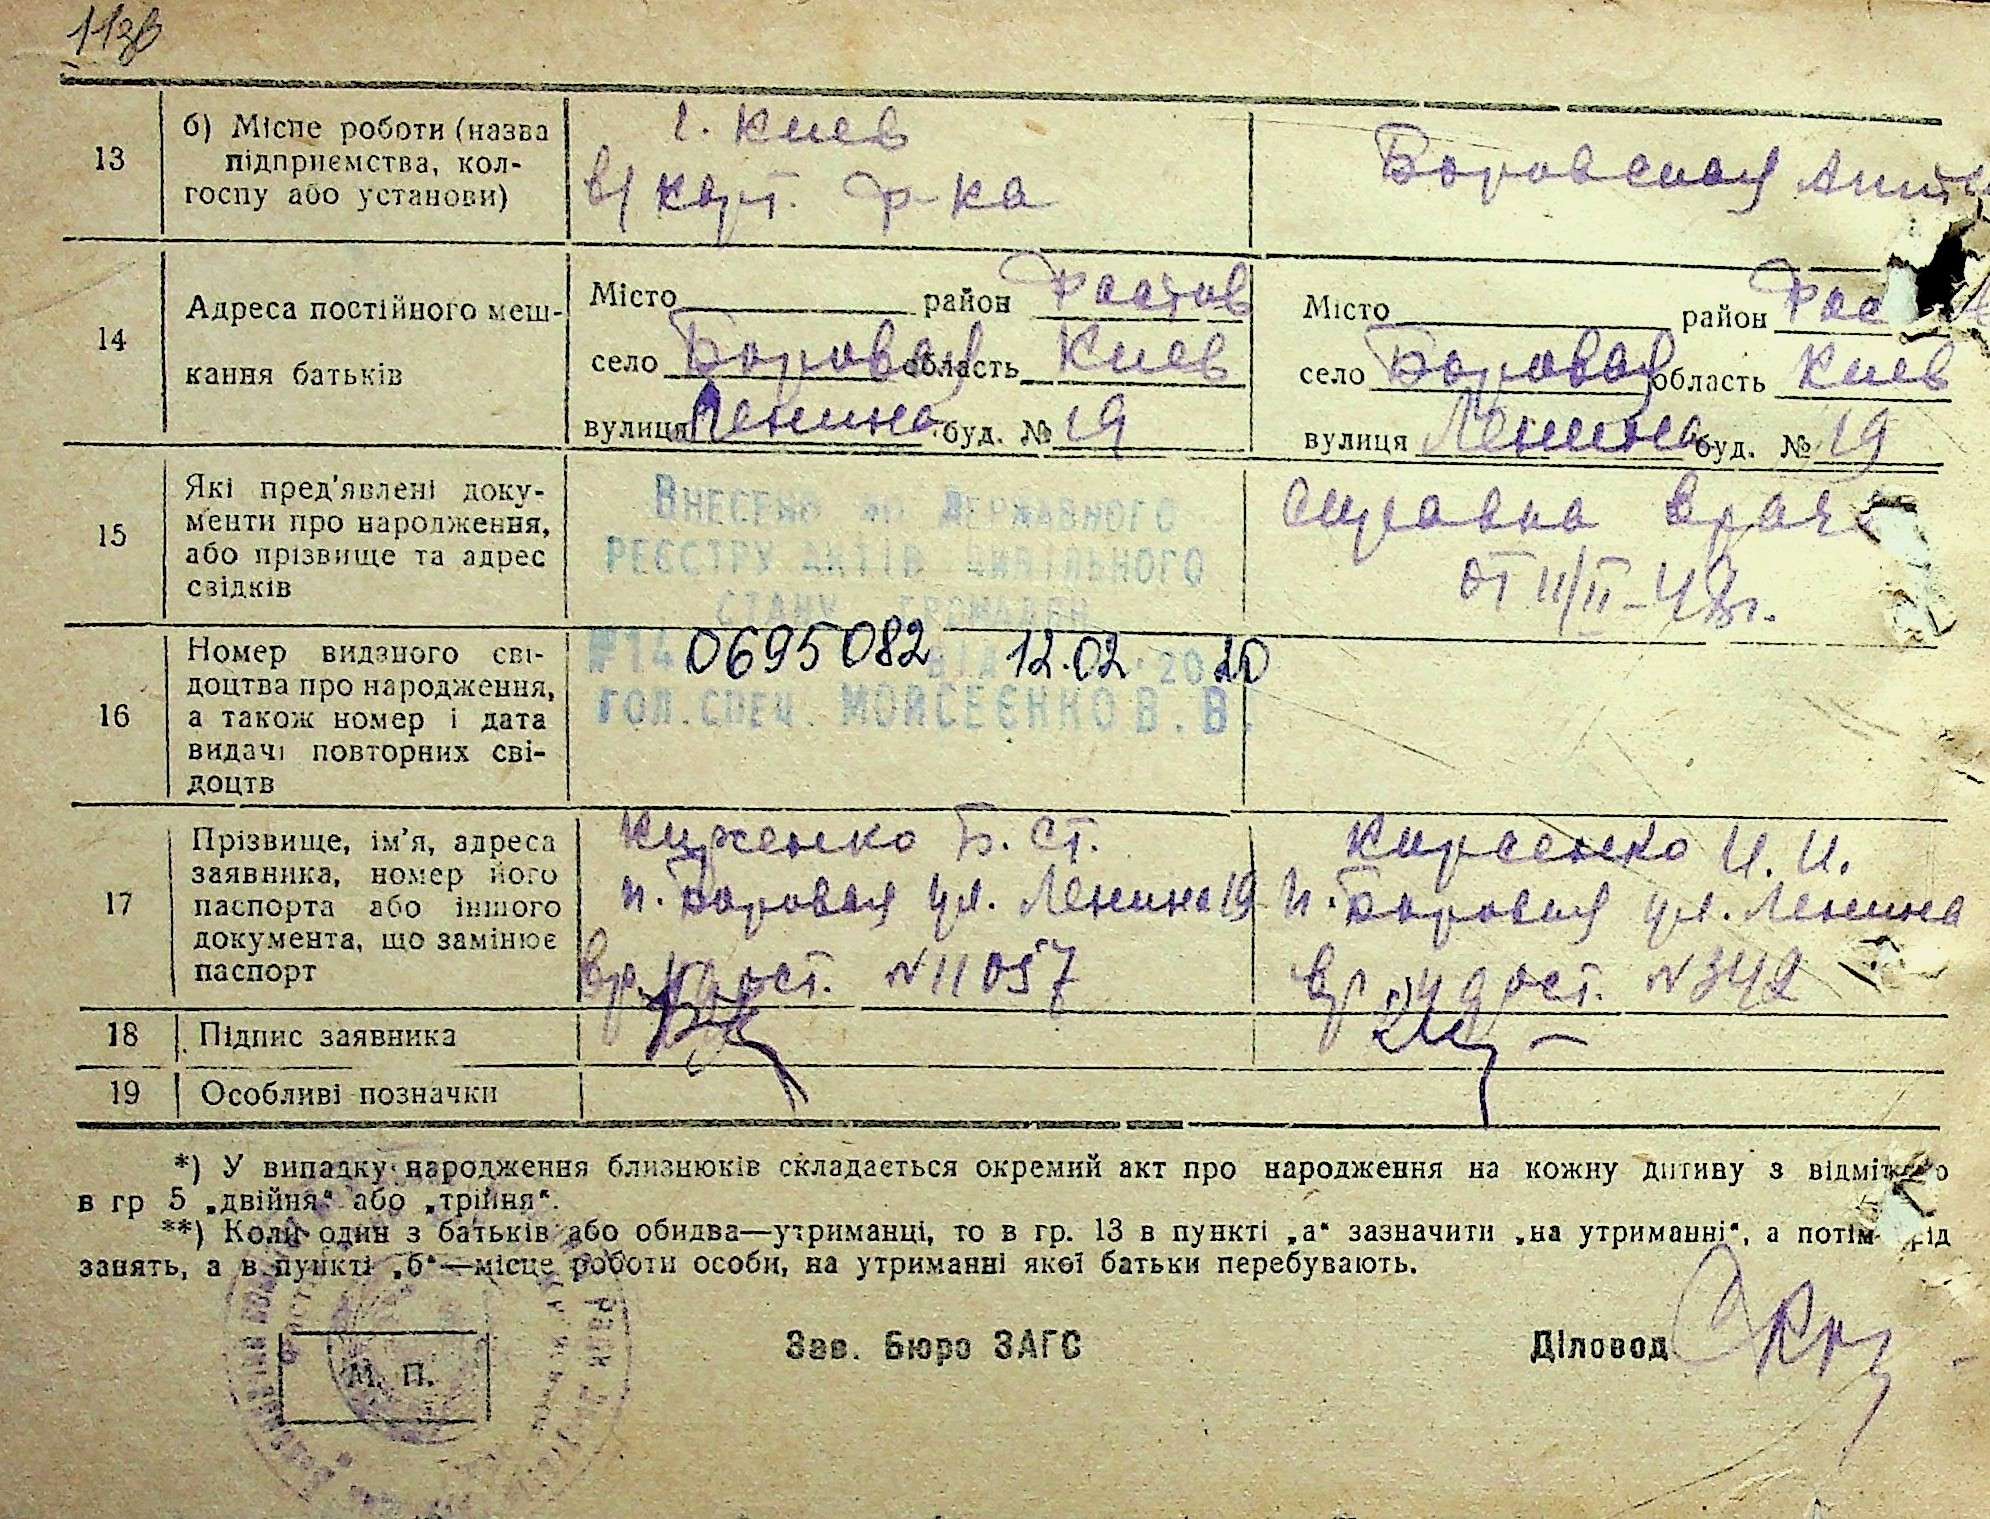 113в
13
б) Місце роботи (назва
підприємства, кол-
госпу або установи)
г. Киев
в/карт. ф-ка
Боровская
14
Адреса постійного меш-
кання батьків
Місто район Фастов
село Боровая область Киев
вулиця Ленина буд. № 19
Місто район Фас
село Боровая область Киев
вулиця Ленина буд. № 19
15
Які пред'явлені доку-
менти про народження,
або прізвище та адрес
свідків
Внесено до Державного
реєстру актів цивільного
стану громадян
справка врача
от 11/II-48г.
16
Номер виданого сві-
доцтва про народження,
а також номер і дата
видачі повторних сві-
доцтв
№14 0695082 від 12.02.2020
гол. спец. Мойсеєнко В.В.
17
Прізвище, ім'я, адреса
заявника, номер його
паспорта або іншого
документа, що замінює
паспорт
Б. Ст.
п. Боровая ул. Ленина 19
вр. удост. N 11057
И. И.
п. Боровая ул. Ленина
вр. удост. N 342
18
Підпис заявника
19
Особливі позначки
*) У випадку народження близнюків складається окремий акт про народження на кожну дитину з відміткою
в гр 5 „двійня“ або „трійня“.
**) Коли один з батьків або обидва—утриманці, то в гр. 13 в пункті „а“ зазначити „на утриманні“, а потім рід
занять, а в пункті „б“—місце роботи особи, на утриманні якої батьки перебувають.
М. П.
Зав. Бюро ЗАГС
Діловод